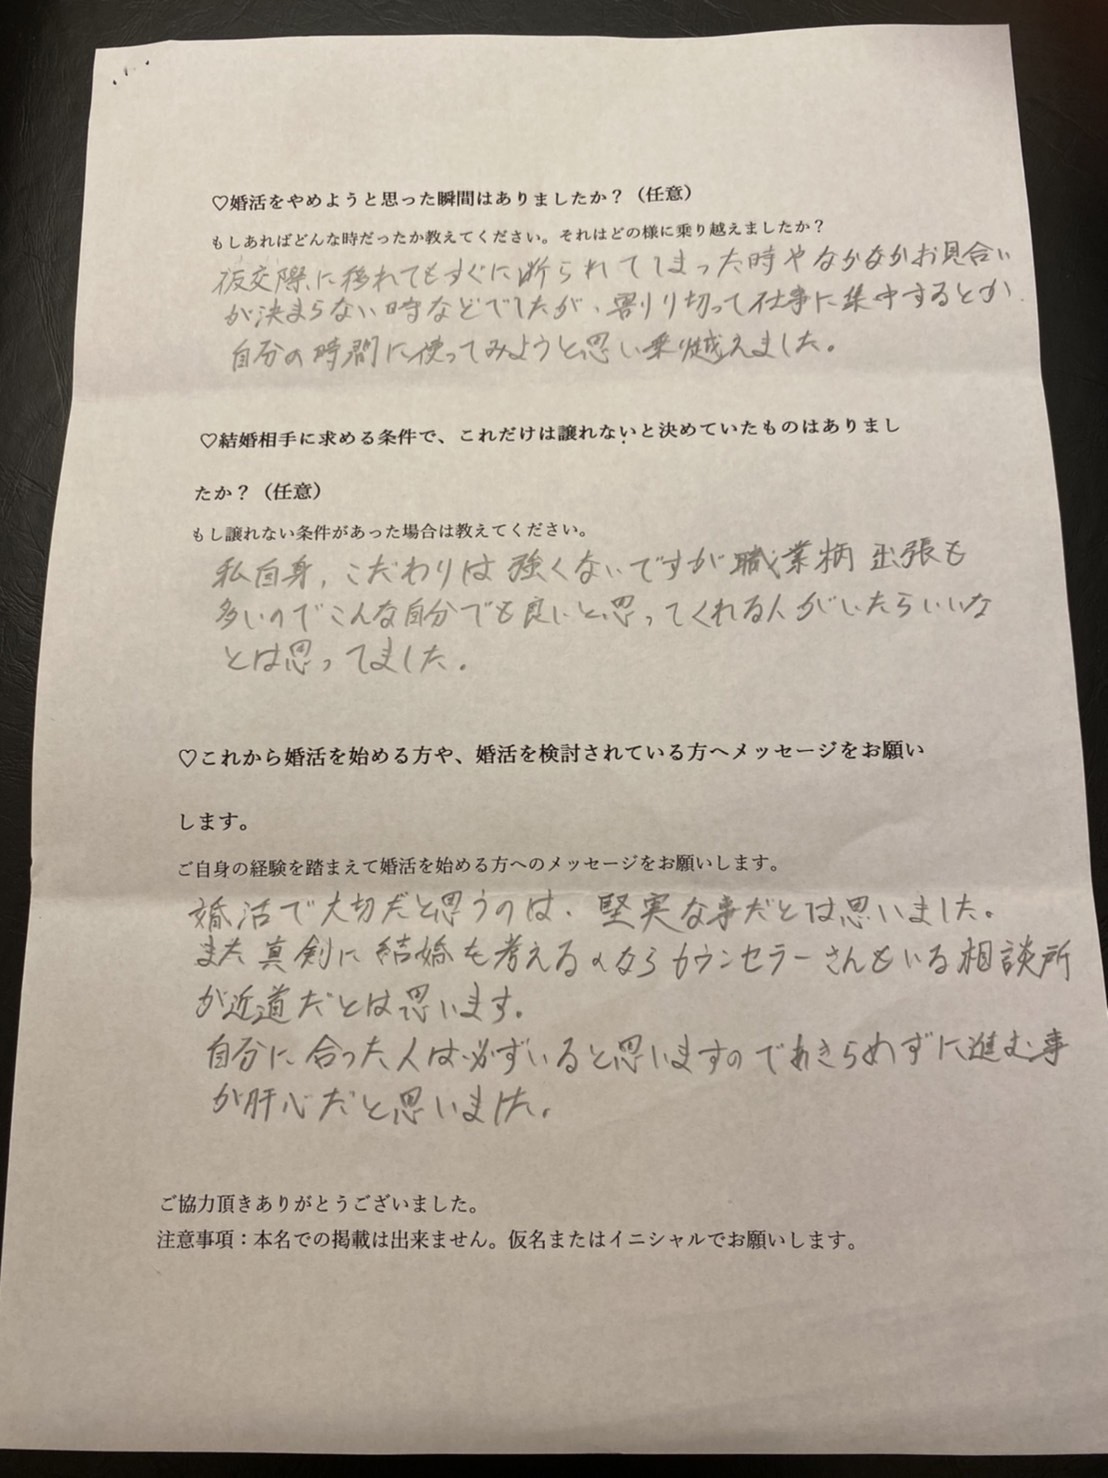 ♡婚活をやめようと思った瞬間はありましたか？（任意）
もしあればどんな時だったか教えてください。それはどの様に乗り越えましたか？
仮交際に移れてもすぐに断られてしまった時やなかなかお見合い
が決まらない時などでしたが、割り切って仕事に集中するとか
自分の時間に使ってみようと思い乗り越えました。
♡結婚相手に求める条件で、これだけは譲れないと決めていたものはありまし
たか？（任意）
もし譲れない条件があった場合は教えてください。
私自身、こだわりは強くないですが職業柄出張も
多いのでこんな自分でも良いと思ってくれる人がいたらいいな
とは思ってました。
♡これから婚活を始める方や、婚活を検討されている方へメッセージをお願い
します。
ご自身の経験を踏まえて婚活を始める方へのメッセージをお願いします。
婚活で大切だと思うのは、堅実な事だとは思いました。
また真剣に結婚を考えるのならカウンセラーさんもいる相談所
が近道だとは思います。
自分に合った人は必ずいると思いますのであきらめずに進む事
が肝心だと思いました。
ご協力頂きありがとうございました。
注意事項：本名での掲載は出来ません。仮名またはイニシャルでお願いします。